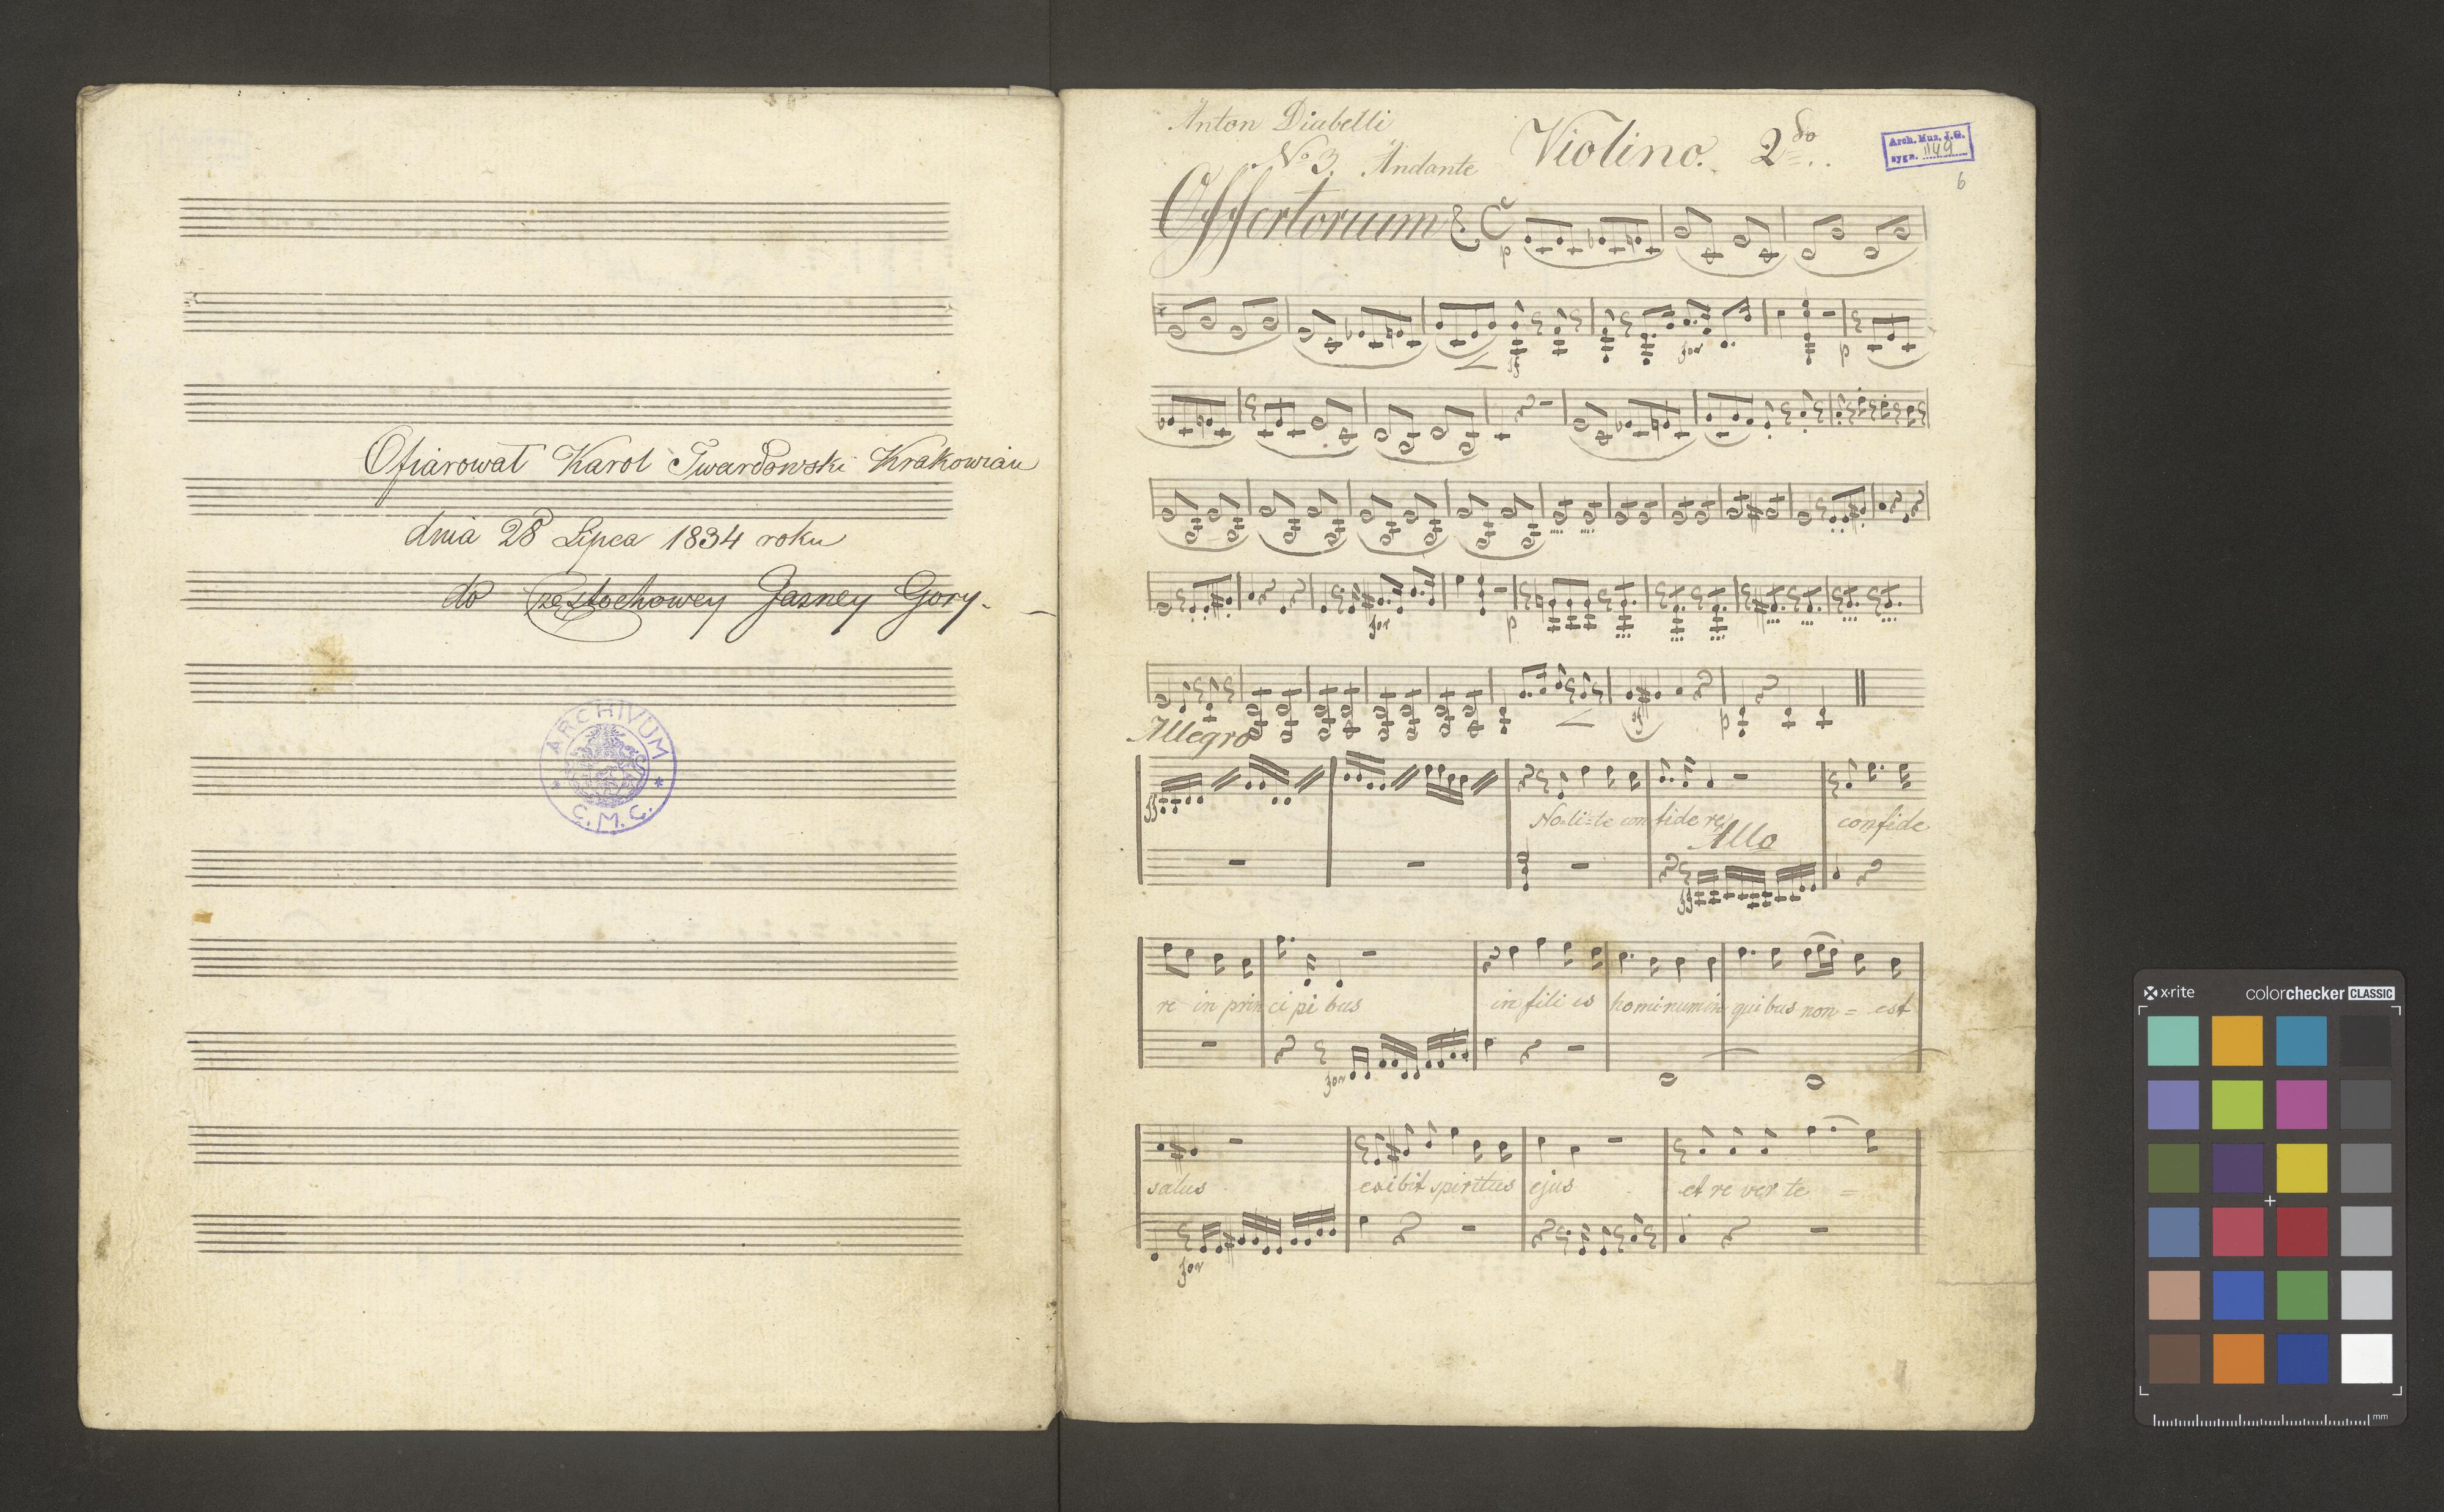 Ofiarował Karol Twardowski Krakowian
dnia 28 Lipca 1834 roku
do Częstochowey Jasney Gory.
ARCHIVUM
C. M. C.
Anton Diabelli
No 3. Andante
Violino. 2do
Arch. Muz. J.G.
sygn. 1149
6
Offertorium
p
for
p
for
p
p
Allegro
Nolite confidere
confide
Allo
re in principibus in filiis hominum in quibus non = est
for
salus exibit spiritus ejus et reverte =
for
x·rite colorchecker CLASSIC
mm